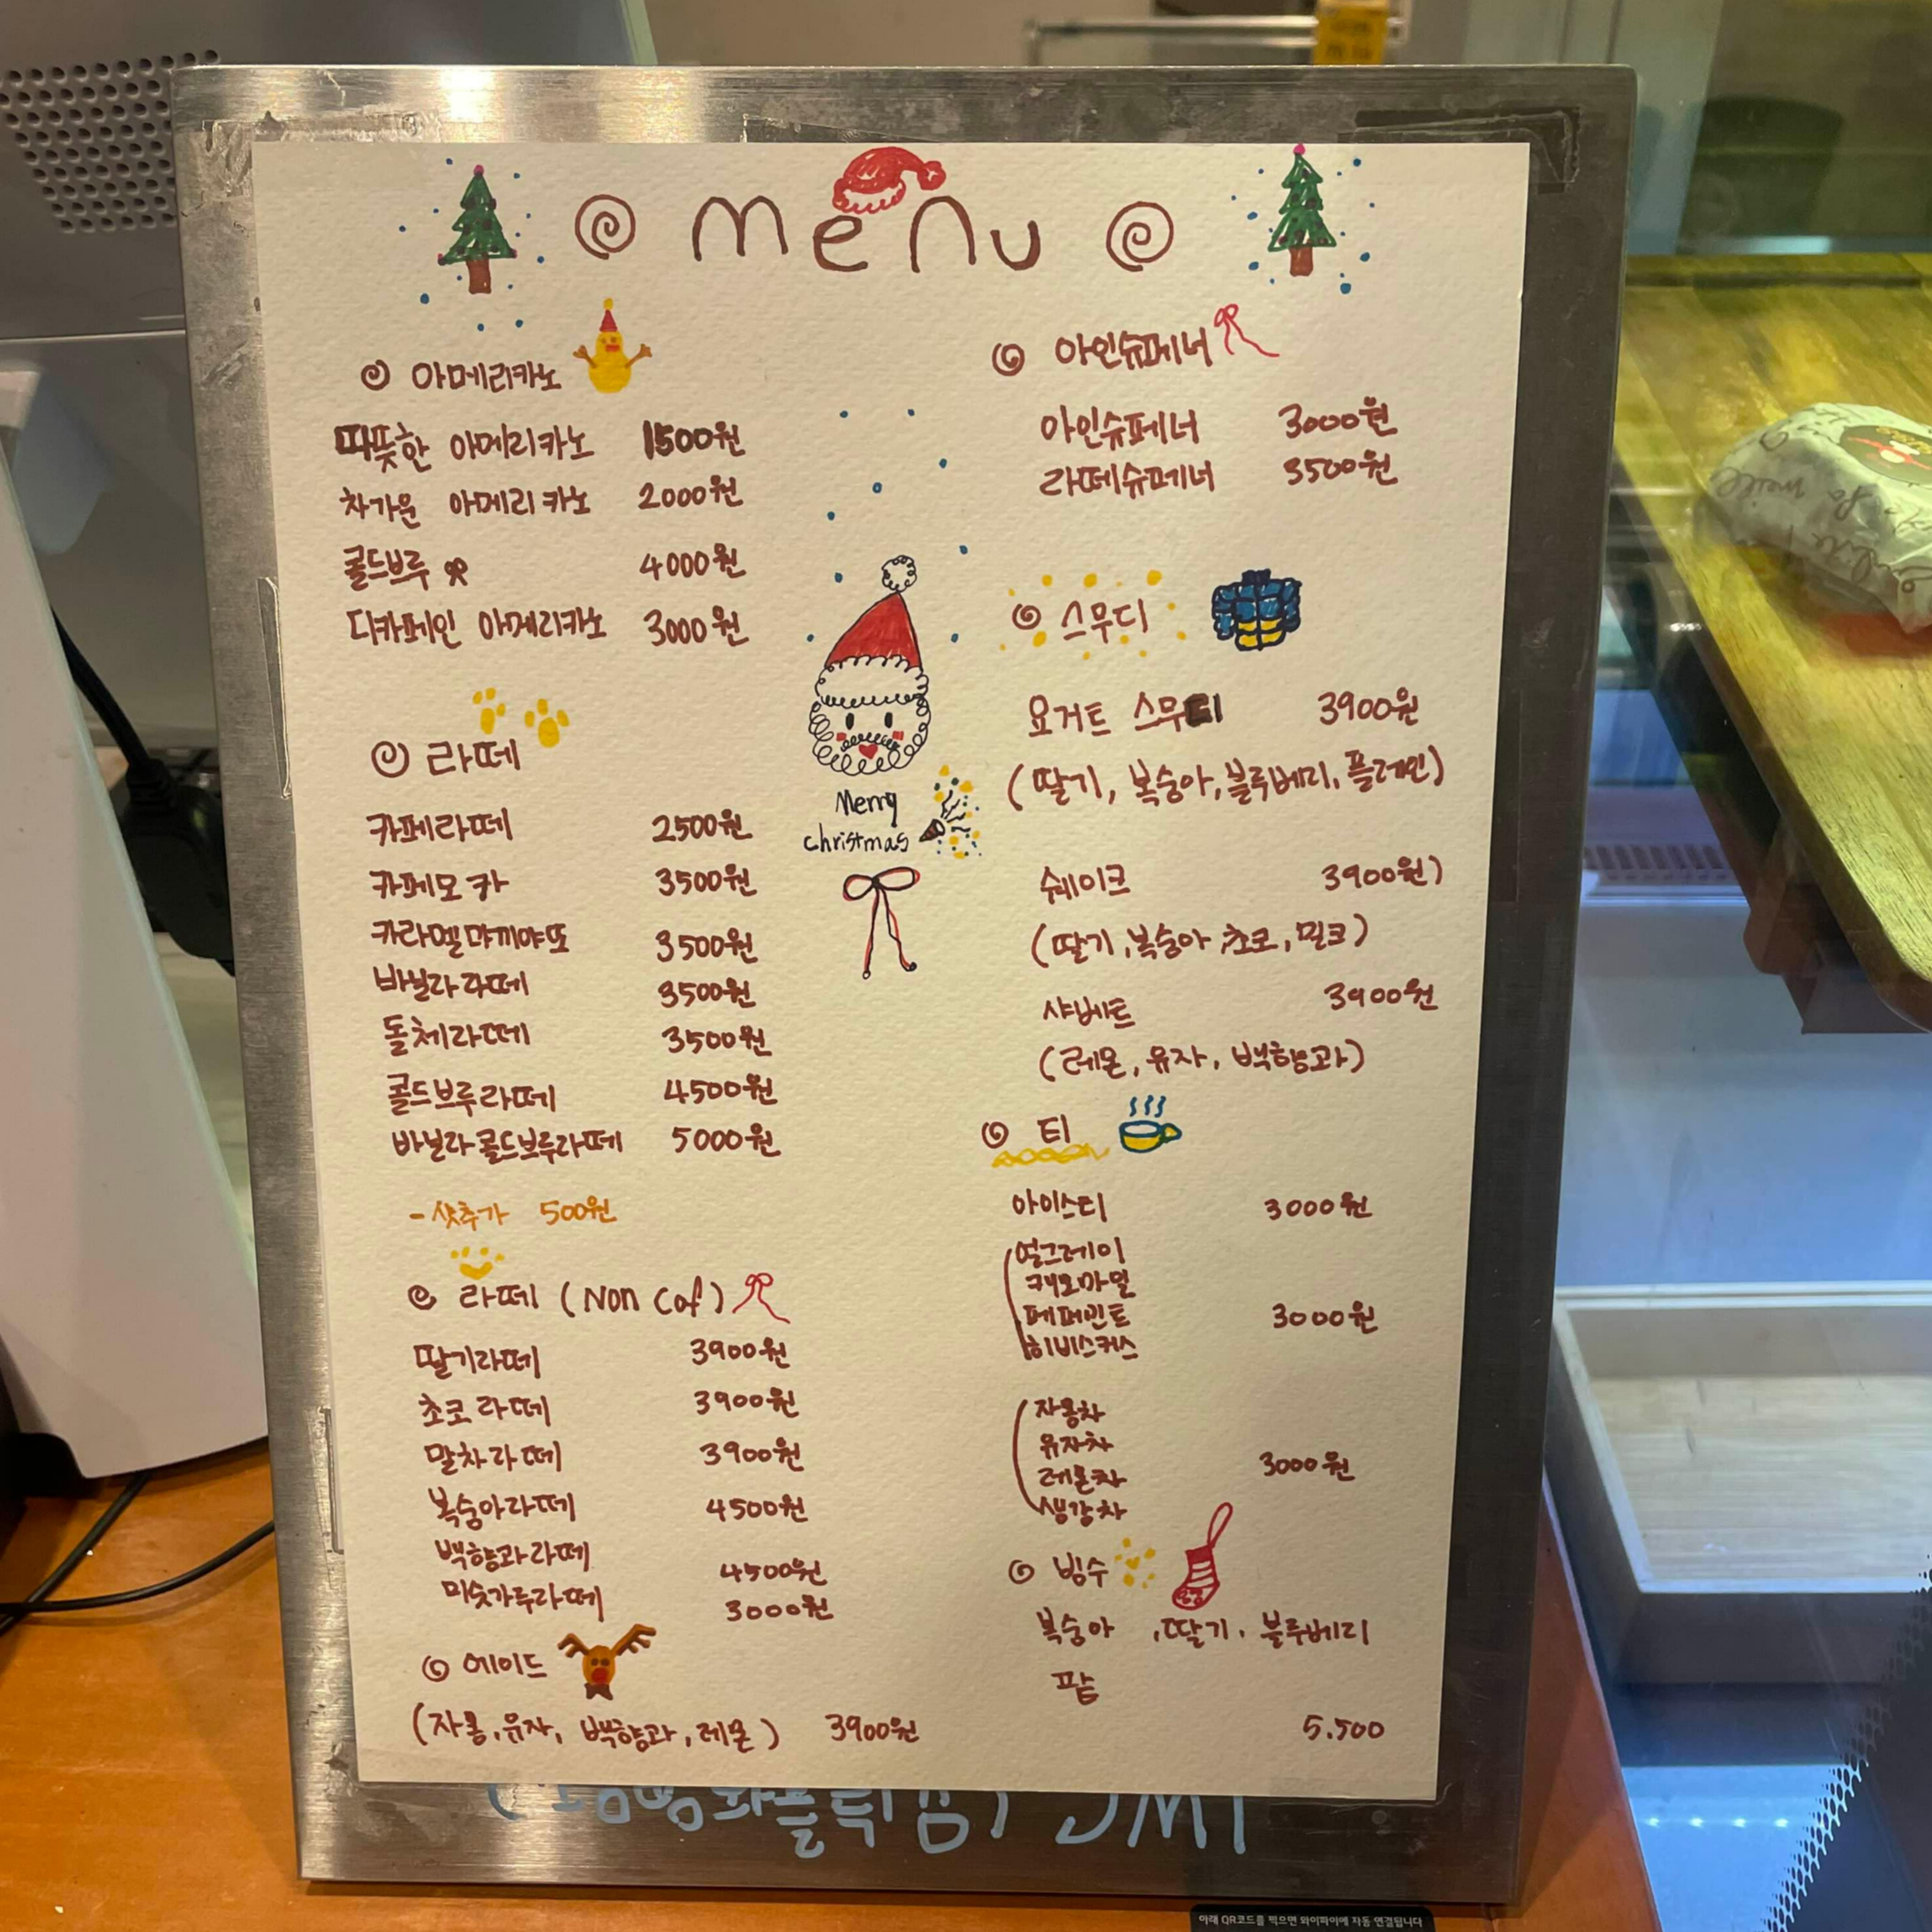 menu
아메리카노
따뜻한 아메리카노 1500원
차가운 아메리카노 2000원
콜드브루 4000원
디카페인 아메리카노 3000원
라떼
카페라떼 2500원
카페모카 3500원
카라멜먀끼야또 3500원
바닐라라떼 3500원
돌체라떼 3500원
콜드브루라떼 4500원
바닐라콜드브루라떼 5000원
- 샷추가 500원
라떼 (Non Caf)
딸기라떼 3900원
초코라떼 3900원
말차라떼 3900원
복숭아라떼 4500원
백향과라떼 4500원
미숫가루라떼 3000원
에이드
(자몽, 유자, 백향과, 레몬) 3900원
Merry
christmas
아인슈페너
아인슈페너 3000원
라떼슈페너 3500원
스무디
요거트 스무디 3900원
(딸기, 복숭아, 블루베리, 플레인)
쉐이크 3900원)
(딸기, 복숭아, 초코, 밀크)
샤베트 3900원
(레몬, 유자, 백향과)
티
아이스티 3000원
얼그레이
캐모마일
페퍼민트 3000원
히비스커스
자몽차
유자차
레몬차 3000원
생강차
빙수
복숭아 , 딸기, 블루베리
팥
5.500
JMT
아래 QR코드를 찍으면 와이파이에 자동 연결됩니다